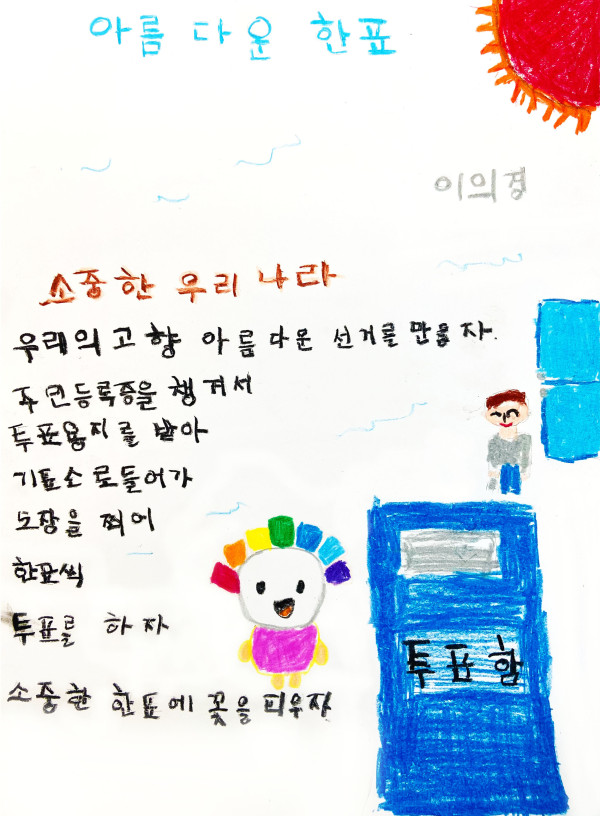 아름다운 한표
이의경
소중한 우리나라
우리의 고향 아름다운 선거를 만들자.
주민등록증을 챙겨서
투표용지를 받아
기표소로 들어가
도장을 찍어
한표씩
투표를 하자
소중한 한표에 꽃을 피우자
투표함